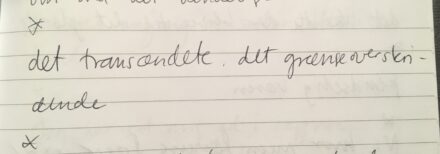 det transcendete. det grænseoverskri-
dende